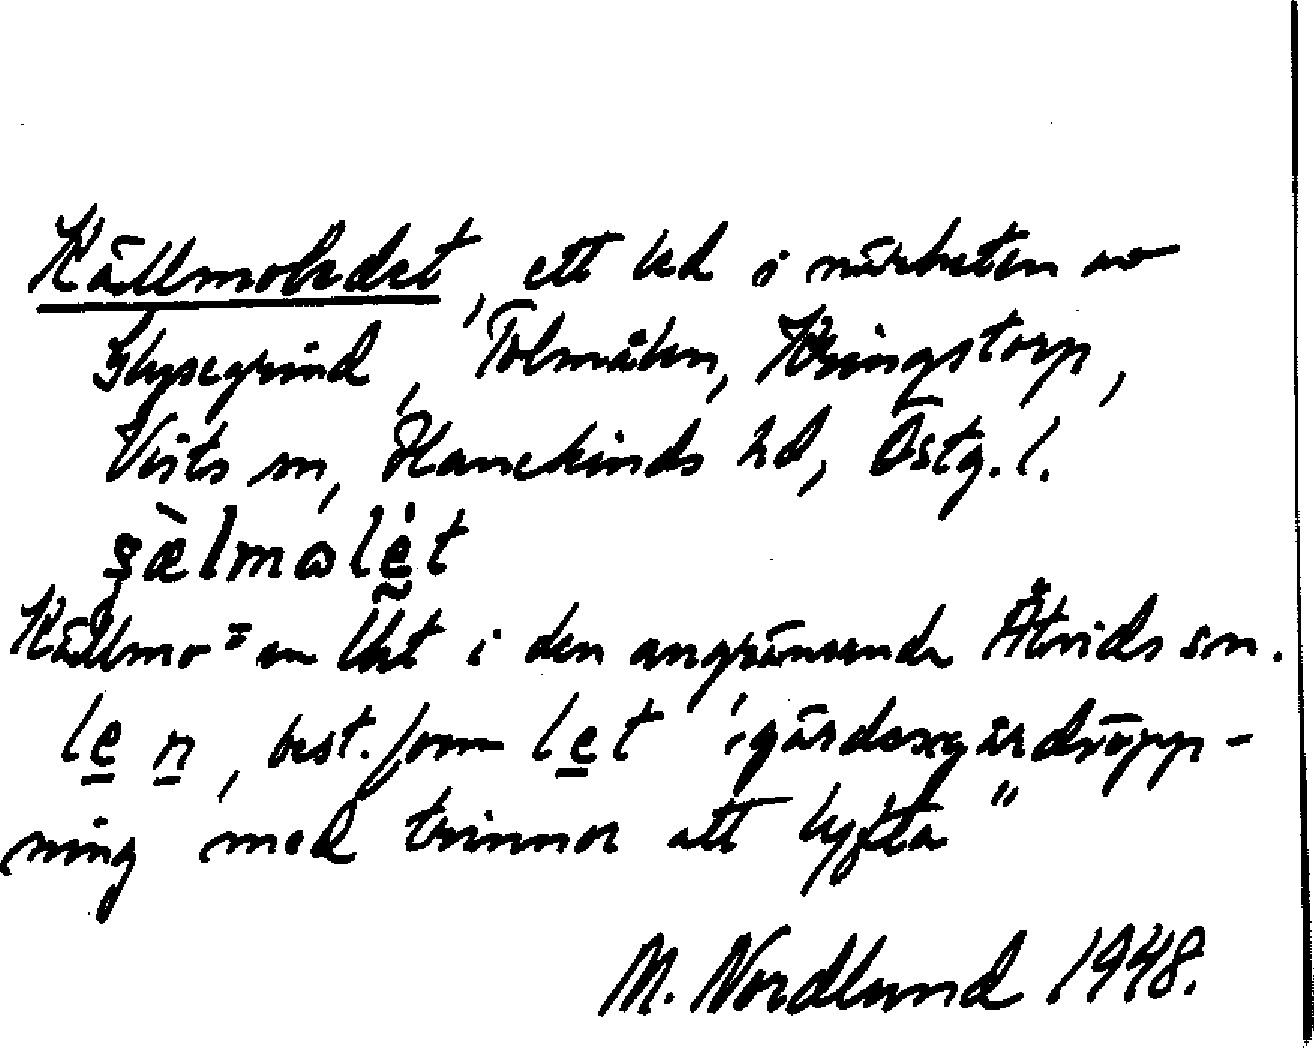 Källmoledet, ett led i närheten av
Glysegrind, Tolmålen, Kringstorp,
Vists sn, Hanekinds hd, Östg. l.
s̨æ̀lmωlèt
Källmo = en lht i den angränsande Åtvids sn.
le n, best. form let "gärdesgårdsöpp-
ning med trinnor att lyfta"
M. Nordlund 1948.